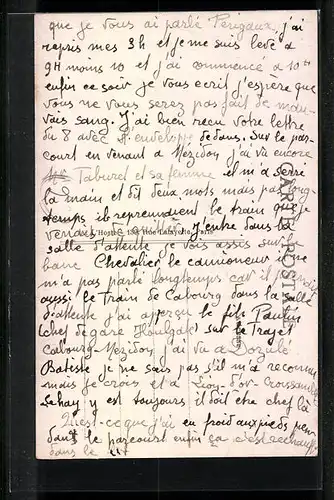 que je vous ai parlé Périgaux, j'ai
repris mes 3h et je me suis levé a
9H moins 10 et j'ai commencé a 10h
enfin ce soir je vous ecrit j'espère que
vous ne vous serez pas fait de mau-
vais sang. J'ai bien reçu votre lettre
du 8 avec l'enveloppe dedans. Sur le par-
court en venant a Mézidon j'ai vu encore
Taburel et sa femme il m'a serré
la main et dit deux mots mais pas long-
temps il reprendrient le train que je
venais j'entre dans la
salle d'attente je vois assis sur le
banc Chevalier le camioneur il ne
m'a pas parlé longtemps car il prenait
aussi le train de Cabourg dans la salle
d'attente j'ai aperçu le fils Pantin
(chef de gare Houlgate) sur le Trajet
Cabourg-Mézidon j'ai vu a Dozulé
Batiste je ne sais pas s'il m'a reconnu
mais je crois et a Lion-d'or-Croissanville
Lehay y est toujours il doit être chef là
Qu'est-ce que j'ai eu froid aux pieds pen
dant le parcourt enfin ça s'est rechauffé
dans le lit
CARTE POSTALE